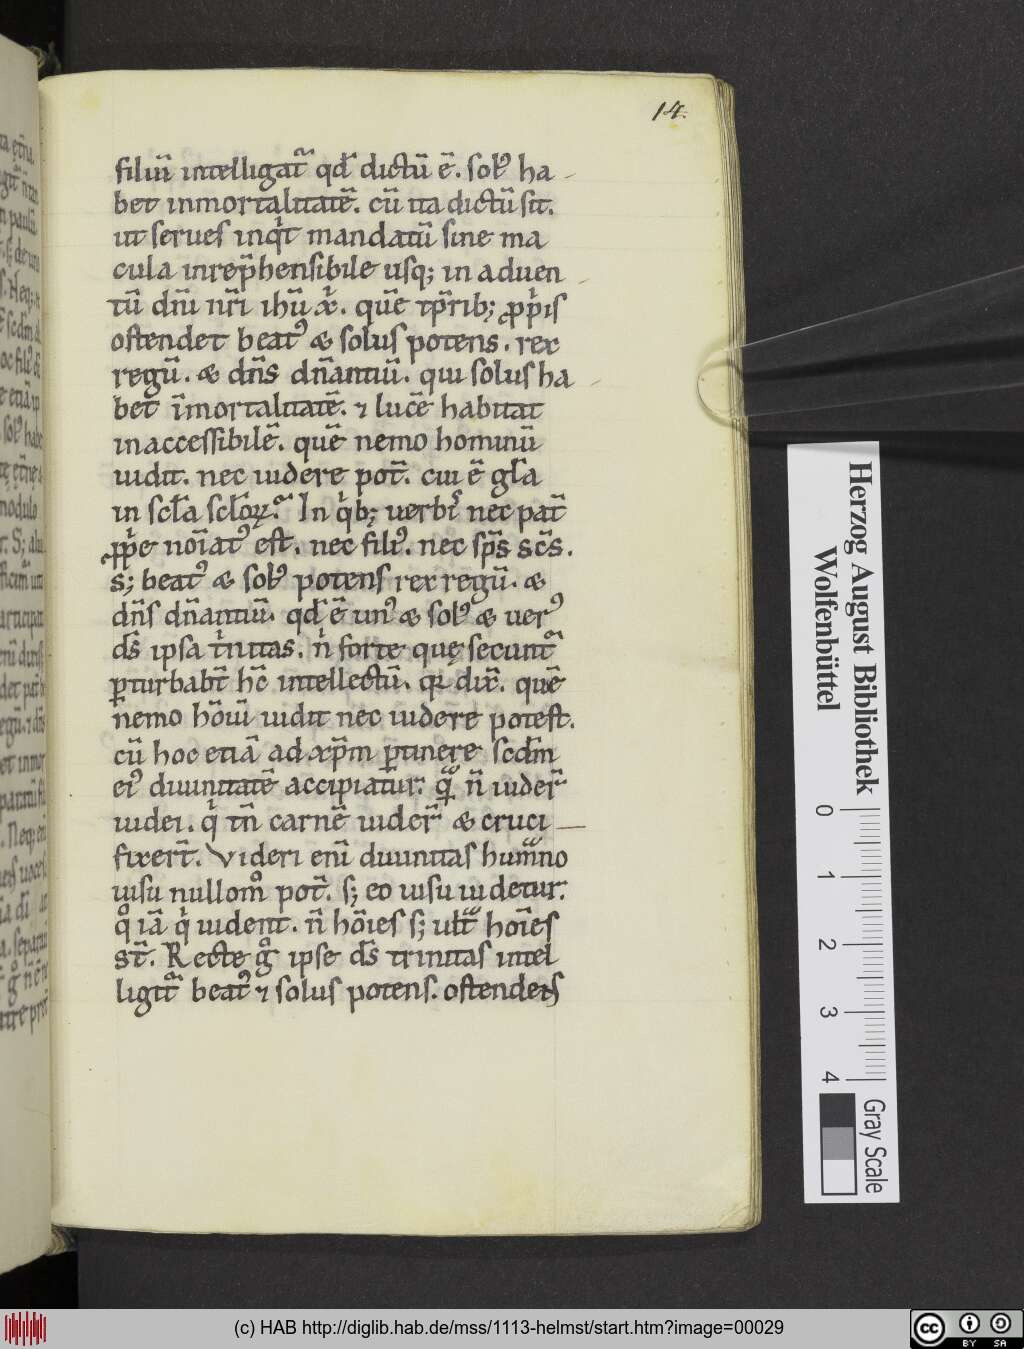 14.
filiū intelligat᷑ qd̄ dictū ē. sol᷒ ha-
bet inmortalitatē. cū ita dictū sit.
ut serues inqͥt mandatū sine ma
cula inrep̄hensibile usq; in aduen-
tū dn̄i nr̄i ihū xp̄i. quē tp̄rib; ꝓpͥis
ostendet beat᷒ & solus potens. rex
regū. & dn̄s dn̄antiū. qui solus ha-
bet īmortalitatē. ⁊ lucē habitat
inaccessibilē. quē nemo hominū
uidit. nec uidere pot̄. cui ē gl̄a
in scl̄a scl̄oꝝ. In qͥb; uerbis nec pat̄
ꝓpͥe noīat᷒ est. nec fili᷒. nec sp̄s sc̄s.
S; beat᷒ & sol᷒ potens rex regū. &
dn̄s dn̄antiū. qd̄ ē un᷒ & sol᷒ & uer᷒
ds̄ ipsa tͥnitas. nͥ forte quę secunt᷑
ꝑturbabt̄ hc̄ intellectū. qꝛ dix̄. quē
nemo hōiū uidit nec uidere potest.
cū hoc etiā ad xp̄m ꝑtinere scd̄m
ei᷒ diuinitatē accipiatur. qᷓ n̄ uider̄
iudei. qͥ tn̄ carnē uider̄ & cruci-
fixert̄. Videri enī diuinitas humᷓno
uisu nullomͦ pot̄. s; eo uisu uidetur.
qͦ iā qͥ uident. n̄ hōies s; ultᷓ hoīes
st̄. Recte gͦ ipse ds̄ trinitas intel
ligit᷑ beat᷒ ⁊ solus potens. ostendens
Herzog August Bibliothek
Wolfenbüttel
0 1 2 3 4
Gray Scale
(c) HAB http://diglib.hab.de/mss/1113-helmst/start.htm?image=00029
cc BY SA